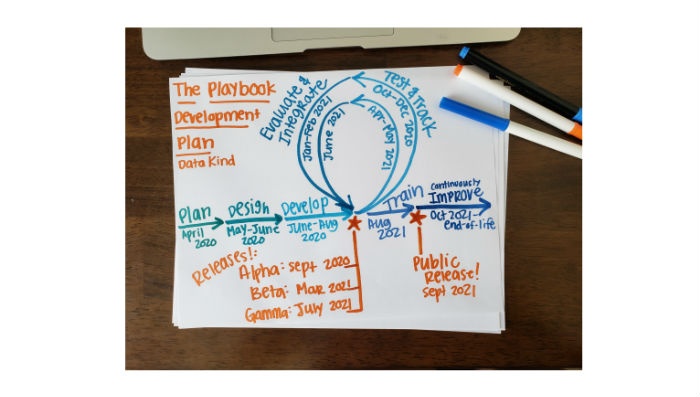 The Playbook
Development
Plan
Data Kind
Evaluate &
Integrate
Jan-Feb 2021
June 2021
Test & Track
Oct-Dec 2020
Apr-May 2021
Plan
April
2020
Design
May-June
2020
Develop
June-Aug
2020
Train
Aug
2021
Continuously
IMPROVE
Oct 2021→
end-of-life
Releases!:
Alpha: Sept 2020
Beta: Mar 2021
Gamma: July 2021
Public
Release!
Sept 2021